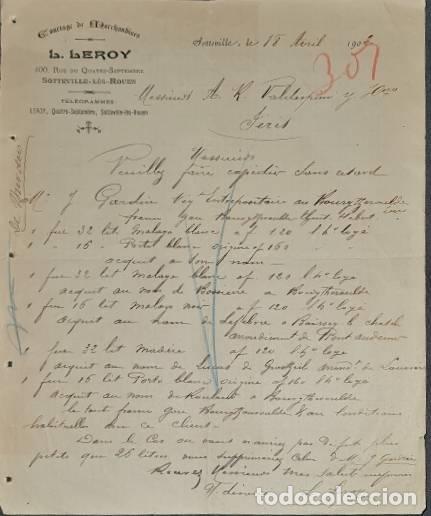 Courtage de Marchandises
L. LEROY
100, Rue du Quatre-Septembre
SOTTEVILLE-LÈS-ROUEN
TÉLÉGRAMMES
LEROY, Quatre-Septembre, Sotteville-lès-Rouen
Sotteville, le 18 Avril 190
307
Messieurs A. R. Valdespino y Hno
Jerez
Messieurs
Veuillez faire expédier sans retard
Mr J Gardin Nég Entrepositaire au Bourgtheroulde
franco gare Bourgtheroulde
1 fut 32 lit Malaga blanc af 120 l'h° logé
1 - 16 - Porto blanc origine af 160
acquit à son nom
1 fut 32 lit Malaga blanc af 120 l'h° logé
acquit au nom de à Bourgtheroulde
1 fut 16 lit Malaga noir af 120 l'h° logé
acquit au nom de Lefebvre à
arrondissement de Pont Audemer
1 fut 32 lit Madère af 120 l'h° logé
acquit au nom de de arrond. de Louviers
1 fut 16 lit Porto blanc origine af 160 l'h° logé
acquit au nom de à Bourgtheroulde
le tout franco gare Bourgtheroulde & aux conditions
habituelles de ce client
Dans le cas où vous n'auriez pas de fut plus
petits que 26 litres vous supprimeriez celui de M. J Gardin
Recevez Messieurs mes salut
L. Leroy
todocoleccion.net